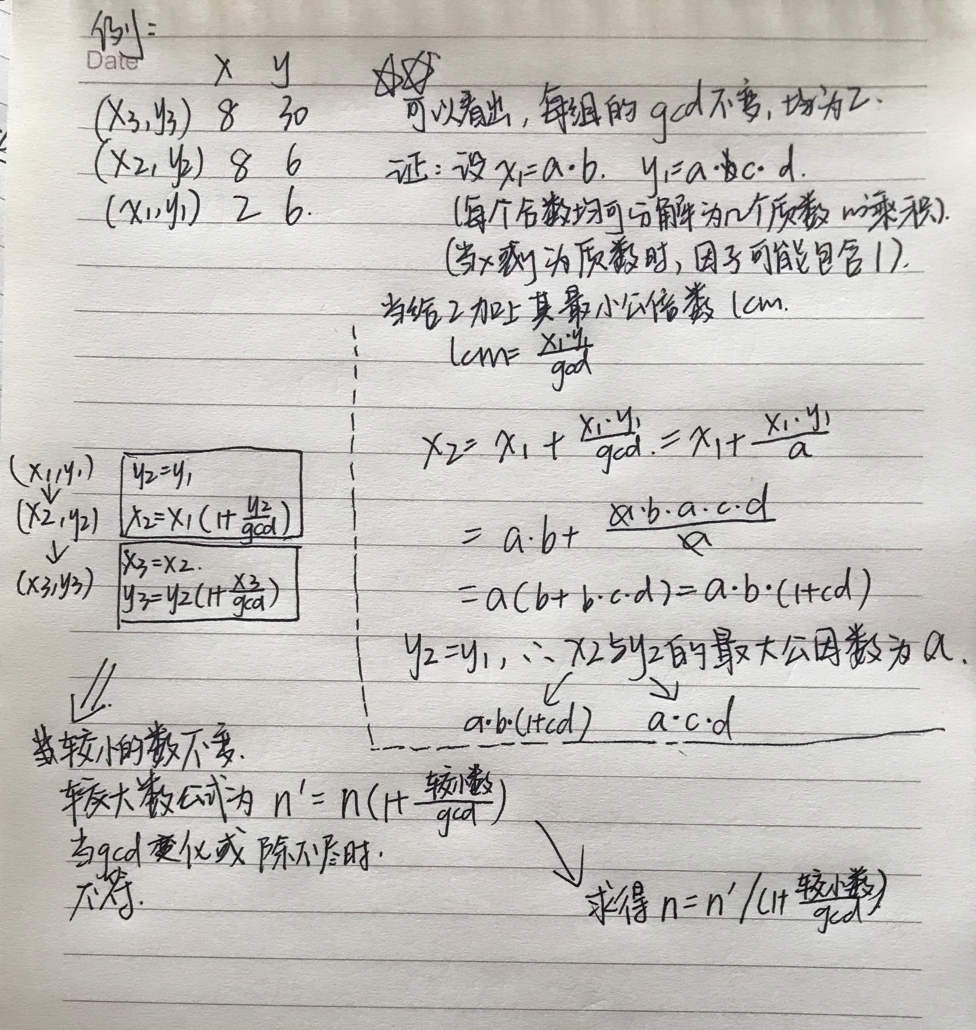 例:
Date
x y
(x3,y3) 8 30
(x2,y2) 8 6
(x1,y1) 2 6.
☆☆
可以看出,每组的gcd不变,均为2.
证:设x1=a·b. y1=a·c·d.
(每个合数均可分解为几个质数的乘积).
(当x或y为质数时,因子可能包含1).
当给2加上其最小公倍数lcm.
lcm= x1·y1/gcd
x2= x1 + x1·y1/gcd = x1+ x1·y1/a
= a·b+ a·b·a·c·d/a
=a(b+b·c·d)=a·b·(1+cd)
y2=y1,∴x2与y2的最大公因数为a.
↙ ↘
a·b·(1+cd) a·c·d
(x1,y1)
↓
(x2,y2)
↓
(x3,y3)
y2=y1
x2=x1(1+y2/gcd)
x3=x2.
y3=y2(1+x3/gcd)
当较小的数不变.
较大数公式为 n'=n(1+较小数/gcd)
当gcd变化或除不尽时.
不符.
求得 n=n'/(1+较小数/gcd)